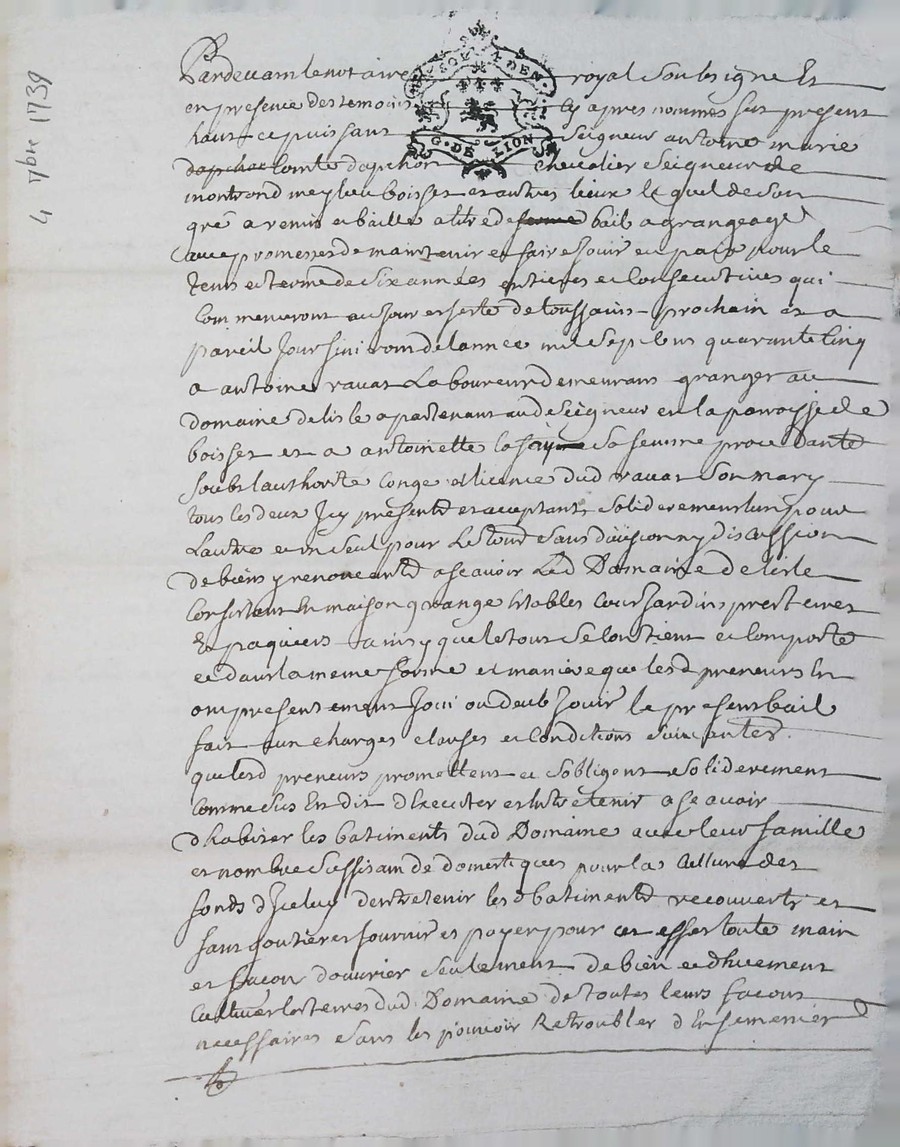 4 7bre 1739
SOL A DEN
G. DE LION
Pardevant le notaire royal soubsigne Et
en presence des temoins cy apres nommés fut present
haut et puissant Seigneur antoine marie
dapchac comte dapchon chevalier seigneur de
montrond meylieu boisset et autres lieux lequel de son
gré a remis et baillé a titre de ferme bail a grangeage
avec promesses de maintenir et faire jouir en paix pour le
tems et terme de six années entieres et consecutives qui
commenceront au jour et feste de toussaint prochain et a
pareil jour finiront de lannée mil sept cens quarante cinq
a antoine ravat Laboureur demeurant granger au
domaine de lisle apartenant aud seigneur en la paroisse de
boisset et a antoinette sa femme procedante
soubs lauthorité congé et licence dud ravat son mary
tous les deux Icy presents et acceptants soliderement lun pour
Lautre et un seul pour Le tout sans division ny discussion
de biens y renonceants a scavoir Led Domaine de lisle
Consistant En maison grange Estables cour jardins prés terres
Et paquiers ainsy que le tout se contient et comporte
et dans la meme forme et maniere que lesd preneurs En
ont presentement joui ou deub jouir le present bail
fait aux charges clauses et conditions suivantes.
que lesd preneurs promettent et sobligent soliderement
comme dessus Est dit dExecuter et Entretenir a scavoir
dhabiter les batiments dud Domaine avec leur famille
et nombre suffisant de domestiques pour la culture des
fonds dIceluy dentretenir lesd batiments recouverts et
sans goutieres fournir et payer pour cet effet toute main
et facon douvrier seulement de bien et dhuement
cultiver les terres dud Domaine de toutes leurs facons
necessaires sans les pouvoir Retroubler dEnsemencer